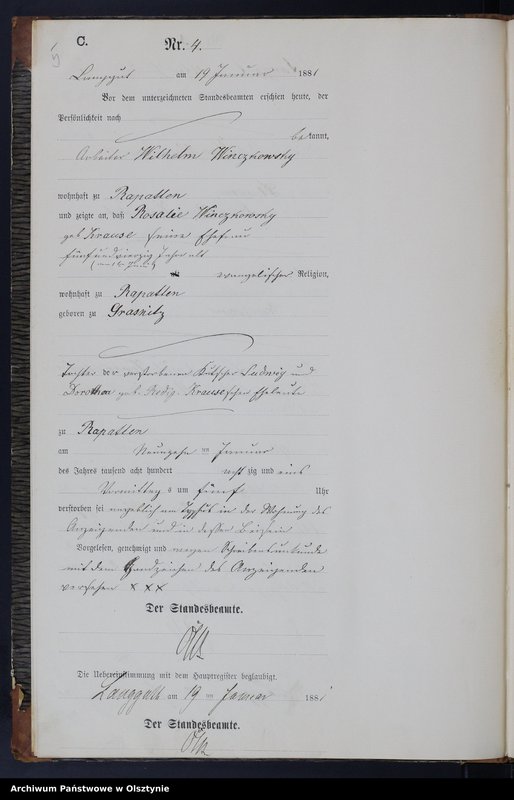 C.
Nr. 4.
Langgut am 19 Januar 1881
Vor dem unterzeichneten Standesbeamten erschien heute, der
Persönlichkeit nach
bekannt,
Arbeiter Wilhelm Winczkowsky
wohnhaft zu Rapatten
und zeigte an, daß Rosalie Winczkowsky
geb. Krause seine Ehefrau
fünfundvierzig Jahre alt
evangelischer Religion,
wohnhaft zu Rapatten
geboren zu Grasnitz
Tochter der verstorbenen Kutscher Ludwig und
Dorothea geb. Krauseschen Eheleute
zu Rapatten
am Neunzehn ten Januar
des Jahres tausend acht hundert acht zig und eins
Vormittag s um fünf Uhr
verstorben sei angeblich am Typhus in der Wohnung des
Anzeigenden und in dessen Beisein
Vorgelesen, genehmigt und wegen Schreibensunkunde
mit dem Handzeichen des Anzeigenden
versehen x x x
Der Standesbeamte.
Die Uebereinstimmung mit dem Hauptregister beglaubigt.
Langgutt am 19 ten Januar 1881
Der Standesbeamte.
Archiwum Państwowe w Olsztynie